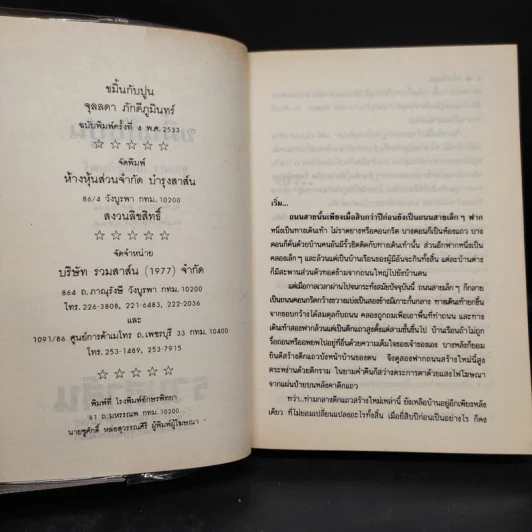 ขมิ้นกับปูน
จุลลดา ภักดีภูมินทร์
ฉบับพิมพ์ครั้งที่ 4 พ.ศ.2533
☆ ☆ ☆ ☆ ☆
จัดพิมพ์
ห้างหุ้นส่วนจำกัด บำรุงสาส์น
86/4 วังบูรพา กทม. 10200
สงวนลิขสิทธิ์
☆ ☆ ☆ ☆ ☆
จัดจำหน่าย
บริษัท รวมสาส์น (1977) จำกัด
864 ถ.ภาณุรังษี วังบูรพา กทม. 10200
โทร.226-3808, 221-6483, 222-2036
และ
1091/86 ศูนย์การค้าเมโทร ถ.เพชรบุรี 33 กทม. 10400
โทร.253-1489, 253-7915
☆ ☆ ☆ ☆ ☆
พิมพ์ที่ โรงพิมพ์อักษรพิทยา
61 ถ.มหรรณพ กทม. 10200
นายชูศักดิ์ หล่อสุวรรณศิริ ผู้พิมพ์ผู้โฆษณา
เริ่ม...
ถนนสายนั้นเพียงเมื่อสิบกว่าปีก่อนยังเป็นถนนสายเล็ก ๆ ฟาก
หนึ่งเป็นทางเดินเท้า ไม่ราดยางหรือคอนกรีต บางตอนก็เป็นห้องแถว บาง
ตอนก็คั่นด้วยบ้านคนอันมีรั้วชิดติดกับทางเดินเท้านั้น ส่วนอีกฟากหนึ่งเป็น
คลองเล็ก ๆ และล้วนแต่เป็นบ้านเรือนของผู้มีอันจะกินทั้งสิ้น แต่ละบ้านต่าง
ก็มีสะพานส่วนตัวทอดข้ามจากถนนใหญ่ไปยังบ้านตน
แต่เมื่อกาลเวลาผ่านไปจนกระทั่งสมัยปัจจุบันนี้ ถนนสายเล็กๆ ก็กลาย
เป็นถนนคอนกรีตกว้างขวางแบ่งเป็นสองข้างมีเกาะกั้นกลาง ทางเดินเท้ายกขึ้น
จากขอบกว้างได้สมดุลกับถนน คลองถูกถมเพื่อเอาพื้นที่ทำถนน และทาง
เดินเท้าสองฟากล้วนแต่เป็นตึกแถวสูงตั้งแต่สามชั้นขึ้นไป บ้านเรือนถ้าไม่ถูก
รื้อถอนหรืออพยพไปอยู่ที่อื่นด้วยความเต็มใจของเจ้าของเอง บางหลังก็ยอม
ยินดีสร้างตึกแถวบังหน้าบ้านของตน จึงดูสองฟากถนนสร้างใหม่นี้สูง
ตระหง่านด้วยตึกราม ในยามค่ำคืนก็สว่างตระการตาด้วยแสงไฟโฆษณา
จากแผ่นป้ายบนหลังคาตึกแถว
ทว่า..ท่ามกลางตึกแถวสร้างใหม่เหล่านี้ ยังเหลือบ้านอยู่อีกเพียงหลัง
เดียว ที่ไม่ยอมเปลี่ยนแปลงอะไรทั้งสิ้น เมื่อยี่สิบปีก่อนเป็นอย่างไร ก็คง